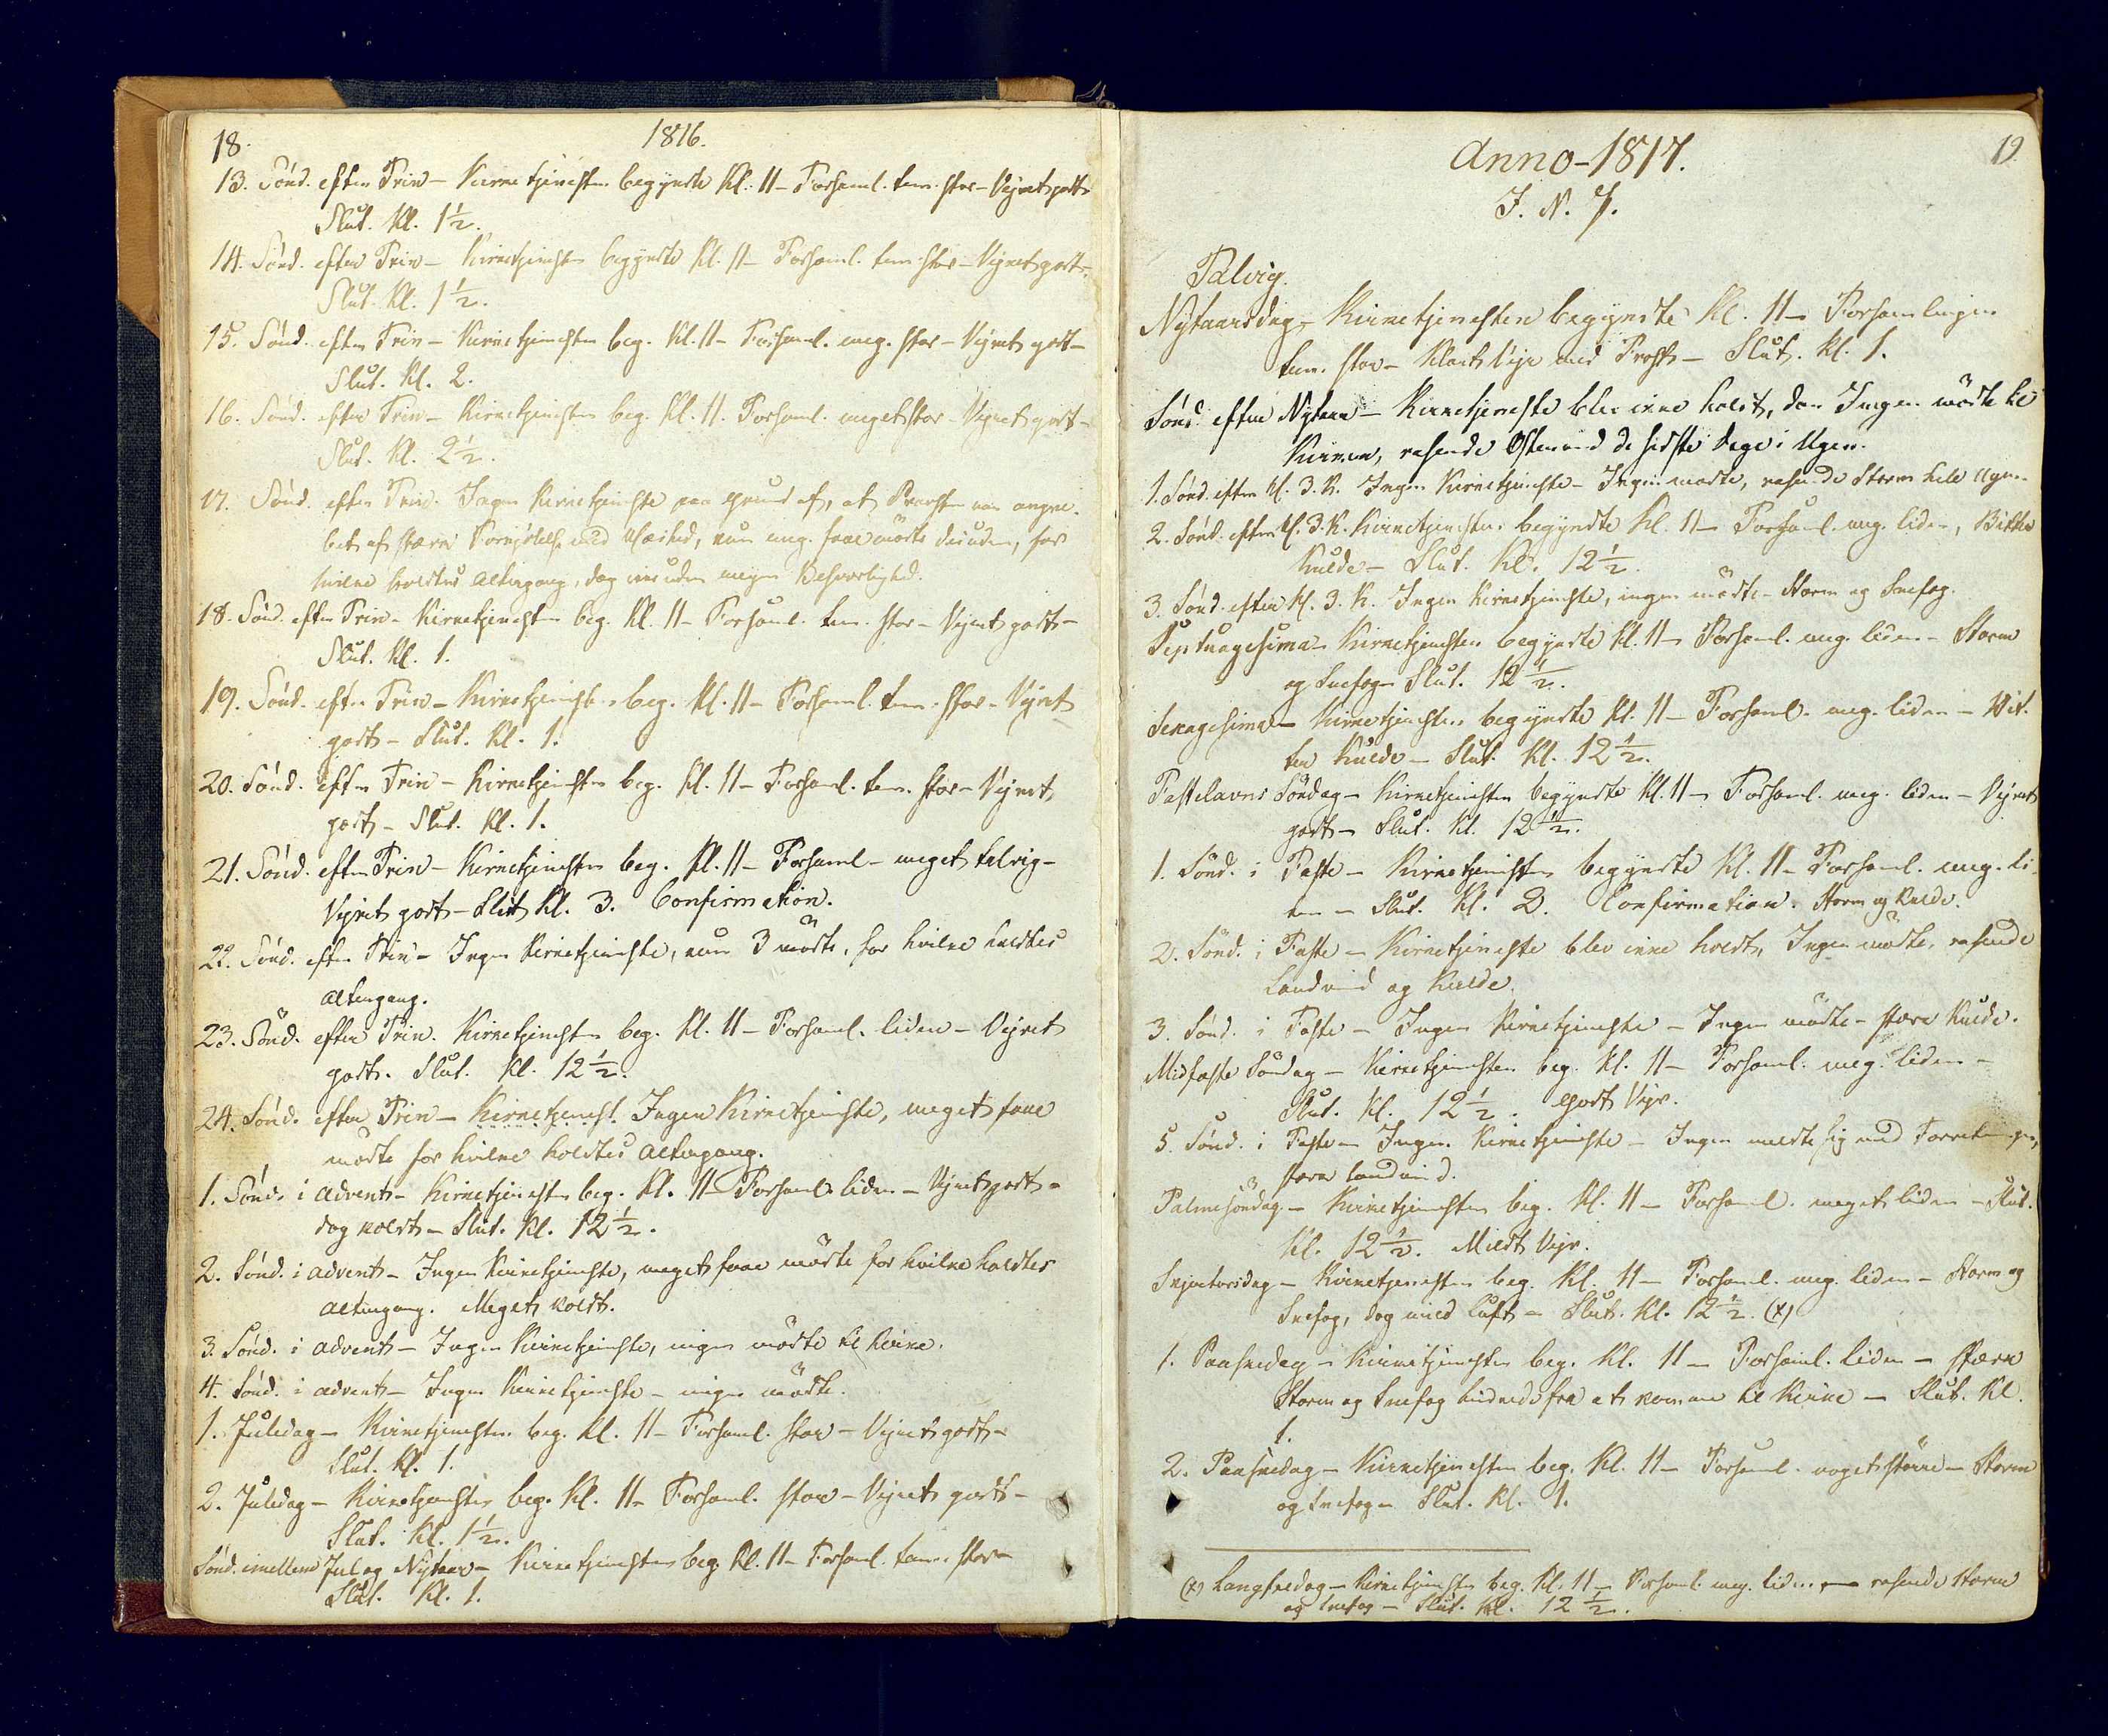 18.
1816.
13. Sönd. efter Trin – Kirketjenesten begyndte Kl. 11 – Forsaml. tem. stor – Vejret godt
Slut. Kl. 1½.
14. Sönd. efter Trin – Kirketjenesten begyndte Kl. 11 – Forsaml. tem. stor – Vejret godt –
Slut. Kl. 1½.
15. Sönd. efter Trin – Kirketjenesten beg. Kl. 11 – Forsaml. meg. stor – Vejret godt –
Slut. Kl. 2.
16. Sönd. efter Trin – Kirketjenesten beg. Kl. 11. Forsaml. meget stor – Vejret godt –
Slut. Kl. 2½.
17. Sönd. efter Trin. Ingen Kirketjeneste paa Grund af, at Præsten var angre-
bet af stærk Forkjölelse med Hæshed, kun meg. faae mödte desuden, for
hvilke holdtes Altergang, dog ikke uden megen Besværlighed.
18. Sönd. efter Trin – Kirketjenesten beg. Kl. 11 – Forsaml. tem. stor – Vejret godt –
Slut. Kl. 1.
19. Sönd. efter Trin – Kirketjenesten beg. Kl. 11 – Forsaml. tem. stor – Vejret
godt – Slut. Kl. 1.
20. Sönd. efter Trin – Kirketjenesten beg. Kl. 11 – Forsaml. tem. stor – Vejret
godt – Slut. Kl. 1.
21. Sönd. efter Trin – Kirketjenesten beg. Kl. 11 – Forsaml – meget talrig –
Vejret godt – Slut Kl. 3. Confirmation.
22. Sönd. efter Trin – Ingen Kirketjeneste, kun 3 mödte, for hvilke holdtes
Altergang.
23. Sönd. efter Trin. Kirketjenesten beg. Kl. 11 – Forsaml. liden – Vejret
godt. Slut. Kl. 12½.
24. Sönd. efter Trin – Kirketjenest. Ingen Kirketjeneste, meget faae
mödte for hvilke holdtes Altergang.
1. Sönd. i Advent – Kirketjenesten beg. Kl. 11 – Forsaml. liden – Vejret godt –
dog koldt – Slut. Kl. 12½.
2. Sönd. i Advent – Ingen Kirketjeneste, meget faae mödte for hvilke holdtes
Altergang. Meget koldt.
3. Sönd. i Advent – Ingen Kirketjeneste, ingen mödte til Kirke.
4. Sönd. i Advent – Ingen Kirketjeneste – ingen mödte.
1. Juledag – Kirketjenesten beg. Kl. 11 – Forsaml. stor – Vejret godt –
Slut. Kl. 1.
2. Juledag – Kirketjenesten beg. Kl. 11 – Forsaml. stor – Vejret godt –
Slut. Kl. 1½.
Sönd. imellem Jul og Nytaar – Kirketjenesten beg. Kl. 11 – Forsaml. tem. stor –
Slut. Kl. 1.
19.
Anno – 1817.
I. N. J.
Talvig.
Nytaarsdag – Kirketjenesten begyndte Kl. 11 – Forsamlingen
tem. stor – Klart Vejr med Frost – Slut. Kl. 1.
Sönd. efter Nytaar – Kirketjeneste blev ikke holdt, da Ingen mödte til
Kirken, rasende Östenvind de sidste Dage i Ugen.
1. Sönd. efter H. 3. K. Ingen Kirketjeneste – Ingen mödte, rasende Storm hele Ugen.
2. Sönd. efter H. 3. K. Kirketjenesten begyndte Kl. 11 – Forsaml. meg. liden, Bitter
Kulde – Slut. Kl. 12½.
3. Sönd. efter H. 3. K. Ingen Kirketjeneste, ingen mödte – Storm og Snefog.
Septuagesima – Kirketjenesten begyndte Kl. 11 – Forsaml. meg. liden – Storm
og Snefog – Slut. 12½.
Sexagesima – Kirketjenesten begyndte Kl. 11 – Forsaml. meg. liden – Bit-
ter Kulde – Slut. Kl. 12½.
Fastelavns Söndag – Kirketjenesten begyndte Kl. 11 – Forsaml. meg. liden – Vejret
godt – Slut. Kl. 12½.
1. Sönd. i Faste – Kirketjenesten begyndte Kl. 11 – Forsaml. meg. li-
den – Slut. Kl. 2. Confirmation. Storm og Kulde.
2. Sönd. i Faste – Kirketjeneste blev ikke holdt, Ingen mödte, rasende
Landvind og Kulde.
3. Sönd. i Faste – Ingen Kirketjeneste – Ingen mödte – stærk Kulde.
Midfaste Söndag – Kirketjenesten beg. Kl. 11 – Forsaml. meg. liden –
Slut. Kl. 12½. Godt Vejr.
5. Sönd. i Faste – Ingen Kirketjeneste – Ingen meldte sig med Forretninger,
stærk Landvind.
Palmesöndag – Kirketjenesten beg. Kl. 11 – Forsaml. meget liden – Slut.
Kl. 12½. Mildt Vejr.
Skjertorsdag – Kirketjenesten beg. Kl. 11 – Forsaml. meg. liden – Storm og
Snefog, dog mild Luft – Slut. Kl. 12½. (x)
1. Paaskedag – Kirketjenesten beg. Kl. 11 – Forsaml. liden – stærk
Storm og Snefog hindrede fra at komme til Kirke – Slut. Kl.
1.
2. Paaskedag – Kirketjenesten beg. Kl. 11 – Forsaml. noget större – Storm
og Snefog – Slut. Kl. 1.
(x) Langfredag – Kirketjenesten beg. Kl. 11 – Forsaml. meg. liden – rasende Storm
og Snefog – Slut. Kl. 12½.